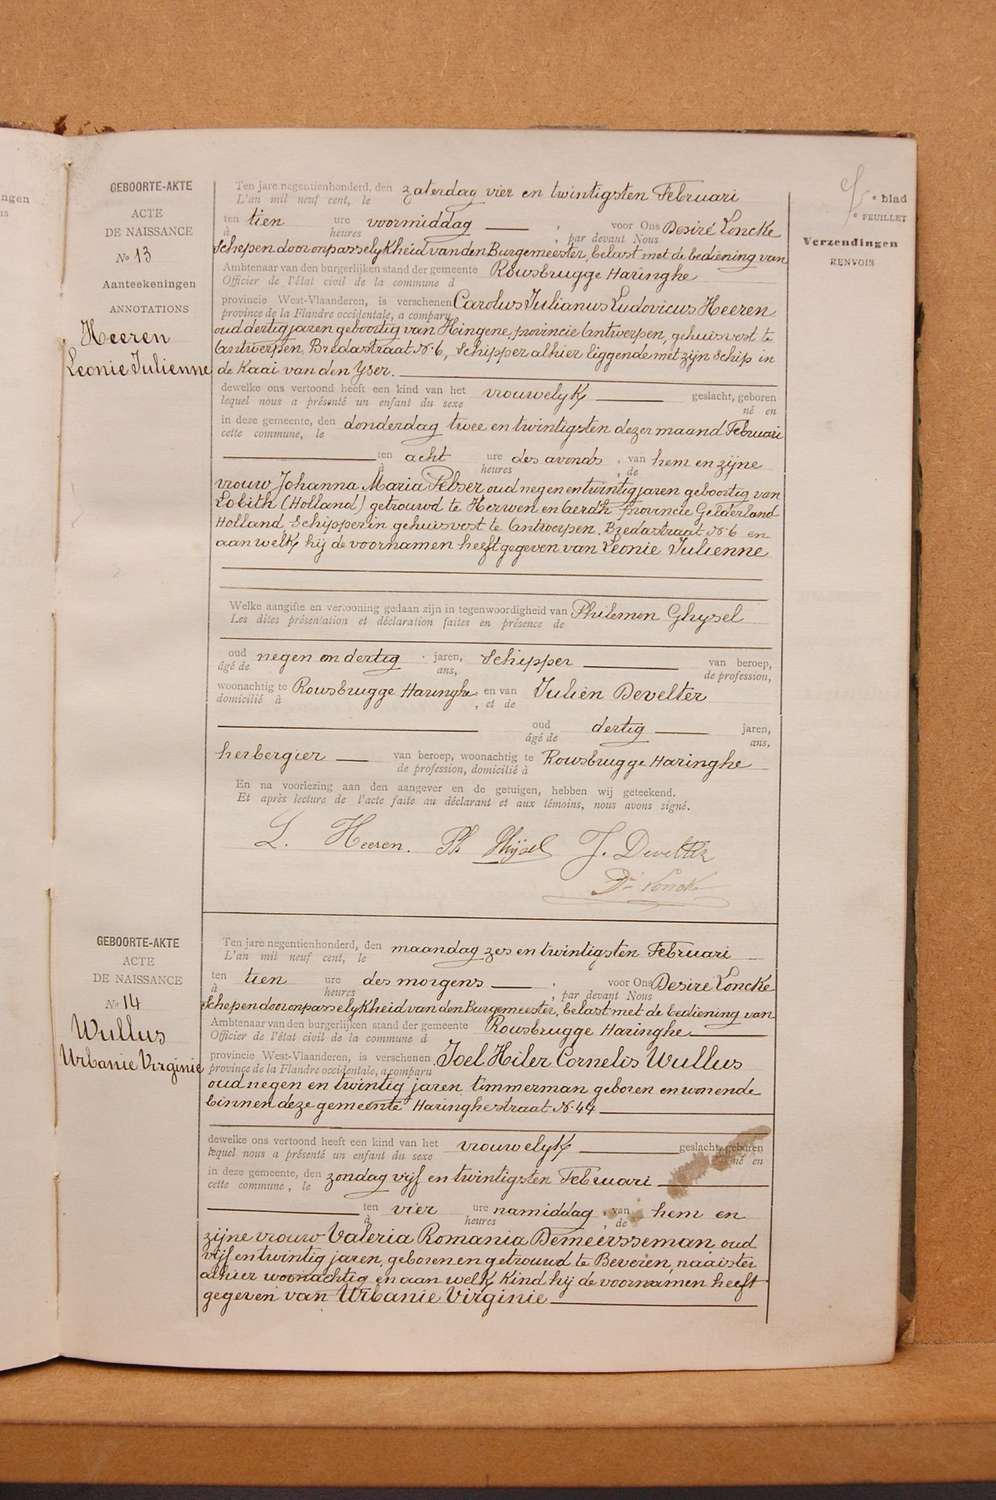 ngen
GEBOORTE-AKTE
ACTE
DE NAISSANCE
No 13
Aanteekeningen
ANNOTATIONS
Heeren
Leonie Julienne
Ten jare negentienhonderd, den zaterdag vier en twintigsten Februari
L'an mil neuf cent, le
ten tien ure voormiddag ; voor Ons Desiré Loncke
à heures , par devant Nous
schepen door onpasselykheid van den Burgemeester, belast met de bediening van
Ambtenaar van den burgerlijken stand der gemeente Rousbrugge Haringhe
Officier de l'état civil de la commune d
provincie West-Vlaanderen, is verschenen Carolus Julianus Ludovicus Heeren
province de la Flandre occidentale, a comparu
oud dertig jaren geboortig van Hingene, provincie Antwerpen, gehuisvest te
Antwerpen Bredastraat No 6, Schipper alhier liggende met zijn schip in
de Kaai van den Yser.
dewelke ons vertoond heeft een kind van het vrouwelyk geslacht, geboren
lequel nous a présenté un enfant du sexe né en
in deze gemeente, den donderdag twee en twintigsten dezer maand Februari
cette commune, le
ten acht ure des avonds , van hem en zijne
à heures , de
vrouw Johanna Maria Pelser oud negen en twintig jaren geboortig van
Lobith (Holland) getrouwd te Herwen en Aerdt, provincie Gelderland
Holland Schipperin gehuisvest te Antwerpen. Bredastraat No 6 en
aan welk hij de voornamen heeft gegeven van Leonie Julienne
Welke aangifte en vertooning gedaan zijn in tegenwoordigheid van Philemon Ghysel
Les dites présentation et déclaration faites en présence de
oud negen en dertig jaren, Schipper van beroep,
âgé de ans, de profession,
woonachtig te Rousbrugge Haringhe en van Julien Develter
domicilié à , et de
oud dertig jaren,
âgé de ans.
herbergier van beroep, woonachtig te Rousbrugge Haringhe
de profession, domicilié à
En na voorlezing aan den aangever en de getuigen, hebben wij geteekend.
Et après lecture de l'acte faite au déclarant et aux témoins, nous avons signé.
L. Heeren. Ph. Ghijsel J. Develter
Dré Loncke
blad
FEUILLET
Verzendingen
RENVOIS
GEBOORTE-AKTE
ACTE
DE NAISSANCE
No 14
Wullus
Urbanie Virginie
Ten jare negentienhonderd, den maandag zes en twintigsten Februari
L'an mil neuf cent, le
ten tien ure des morgens ; voor Ons Desiré Loncke
à heures , par devant Nous
schepen door onpasselykheid van den Burgemeester, belast met de bediening van
Ambtenaar van den burgerlijken stand der gemeente Rousbrugge Haringhe
Officier de l'état civil de la commune d
provincie West-Vlaanderen, is verschenen Joel Hiler Cornelis Wullus
province de la Flandre occidentale, a comparu
oud negen en twintig jaren timmerman geboren en wonende
binnen deze gemeente Haringhestraat No 44
dewelke ons vertoond heeft een kind van het vrouwelyk geslacht, geboren
lequel nous a présenté un enfant du sexe né en
in deze gemeente, den zondag vijf en twintigsten Februari
cette commune, le
ten vier ure namiddag , van hem en
à heures , de
zijne vrouw Valeria Romania Demeersseman oud
vijf en twintig jaren, geboren en getrouwd te Beveren, naaister
alhier woonachtig en aan welk kind hij de voornamen heeft
gegeven van Urbanie Virginie